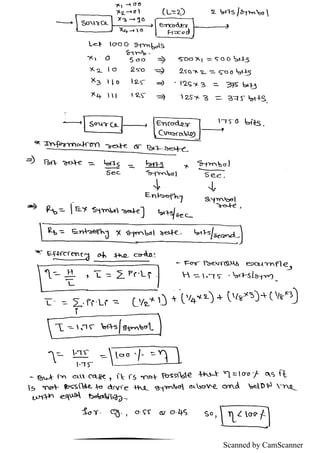 x1→00
x2→01 (L=2) 2 bits/symbol
Source x3→90 Encoder
x4→10 Fixed
Let 1000 symbols
Symb.
x1 0 500 ⇒ 500×1 = 500 bits
x2 10 250 ⇒ 250×2 = 500 bits
x3 110 125 ⇒ 125×3 = 375 bits
x4 111 125 ⇒ 125×3 = 375 bits.
Source Encoder 1750 bits.
(Variable)
* Information rate or Bit rate.
⇒) Bit rate = bits/sec = bits/symbol × symbol/sec.
↓ ↓
Entropy symbol rate.
⇒ Rb = [E × symbol rate] bits/sec
Rb = Entropy × symbol rate. bits/second.
* Efficiency of the code:
η = H/L̄, L̄ = Σ Pi·Li - For previous example,
H = 1.75 · bits/sym.
L̄ = Σ Pi·Li = (1/2×1) + (1/4×2) + (1/8×3) + (1/8×3)
L̄ = 1.75 bits/symbol.
η = 1.75/1.75 = 100 % = η
- But in all case, it is not possible that η=100% as it
is not possible to divide the symbol above and below line
with equal probability.
for eg., 0.55 & 0.45 so, η < 100%
Scanned by CamScanner